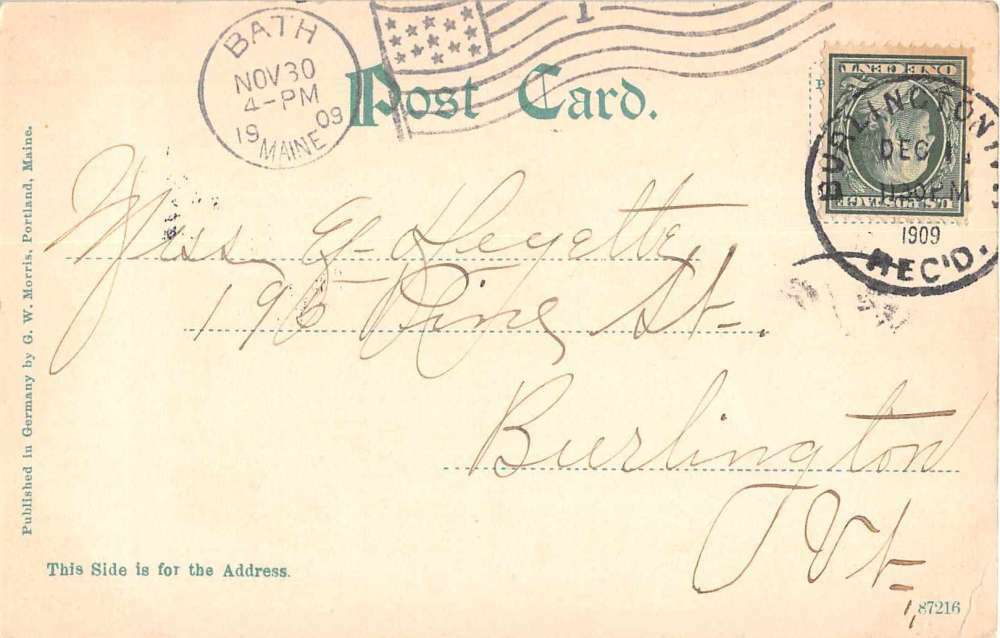 BATH
NOV 30
4-PM
1909
MAINE
1
Post Card.
ONE CENT
U.S. POSTAGE
BURLINGTON
DEC 1
1909
REC'D.
Miss E. Leyette
195 Pine St.
Burlington
Vt.
Published in Germany by G. W. Morris, Portland, Maine.
This Side is for the Address.
87216